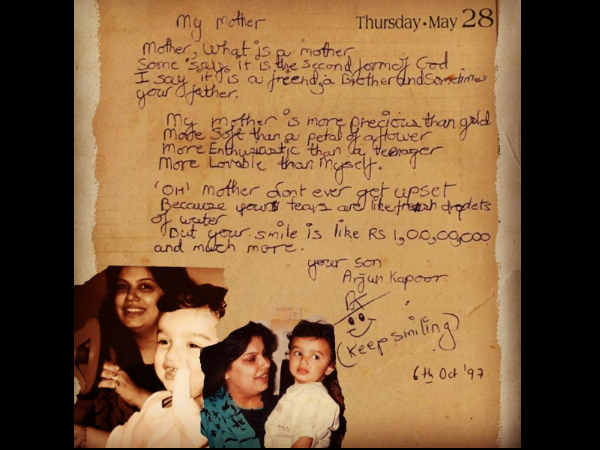 My Mother
Thursday • May 28
Mother, What is a mother
Some 'say' it is the second form of God
I say 'it' is a friend, a Brother and Sometimes
your father.
My mother is more precious than gold
More Soft than a petal of a flower
More Enthusiastic than a teenager
More Lovable than Myself.
'OH' mother dont ever get upset
Because your tears are like fresh droplets
of water
But your smile is like RS 1,00,00,000
and much more.
your son
Arjun Kapoor
(keep smiling)
6th Oct '97